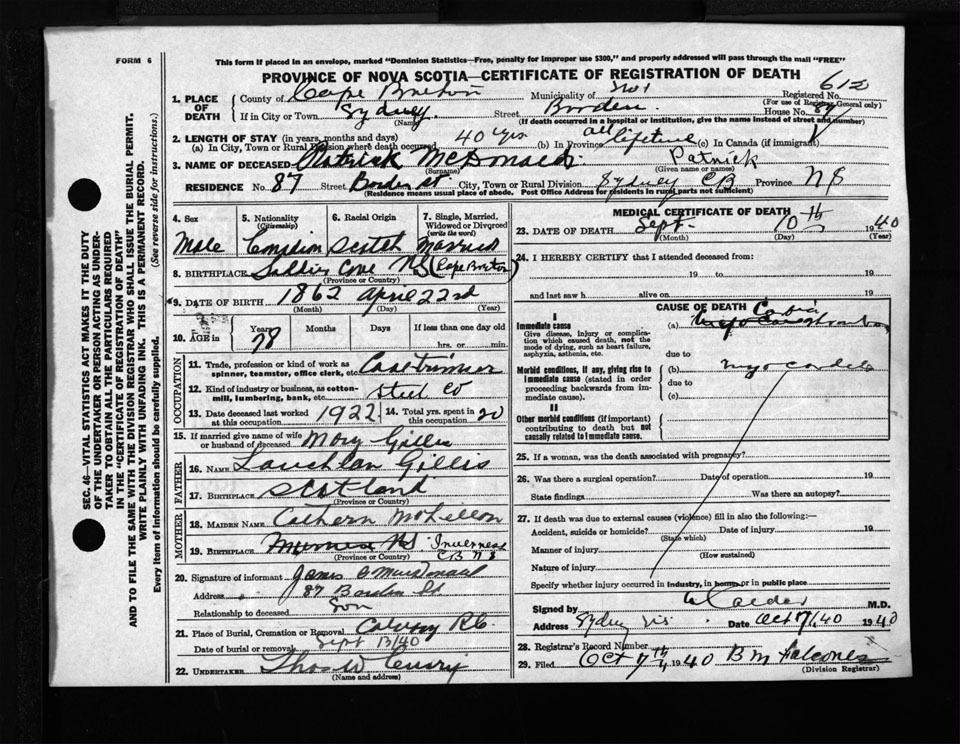 FORM 6
This form if placed in an envelope, marked "Dominion Statistics—Free, penalty for improper use $300," and properly addressed will pass through the mail "FREE"
PROVINCE OF NOVA SCOTIA—CERTIFICATE OF REGISTRATION OF DEATH
612
1. PLACE OF DEATH County of Cape Breton Municipality of Registered No.
(For use of Registrar General only)
If in City or Town Sydney Street Borden House No. 87
(Name) (If death occurred in a hospital or institution, give the name instead of street and number)
2. LENGTH OF STAY (in years, months and days)
(a) In City, Town or Rural Division where death occurred 40 yrs (b) In Province all lifetime (c) In Canada (if immigrant)
3. NAME OF DECEASED Patrick McDonald Patrick
(Surname) (Given name or names)
RESIDENCE No. 87 Street Borden st. City, Town or Rural Division Sydney CB Province NS
(Residence means usual place of abode. Post Office Address for residents in rural parts not sufficient)
4. Sex
Male
5. Nationality (Citizenship)
6. Racial Origin
Scotch
7. Single, Married, Widowed or Divorced (write the word)
Married
8. BIRTHPLACE Cove NS (Cape Breton)
(Province or Country)
9. DATE OF BIRTH 1862 April 22nd
(Month) (Day) (Year)
10. AGE in Years 78 Months Days If less than one day old
hrs. or min.
OCCUPATION
11. Trade, profession or kind of work as spinner, teamster, office clerk, etc.
12. Kind of industry or business, as cotton-mill, lumbering, bank, etc. Steel Co
13. Date deceased last worked at this occupation 1922 14. Total yrs. spent in this occupation 20
15. If married give name of wife or husband of deceased Mary Gillis
FATHER
16. NAME Lauchlan Gillis
17. BIRTHPLACE Scotland
(Province or Country)
MOTHER
18. MAIDEN NAME Cathern McLellon
19. BIRTHPLACE Inverness CB NS
(Province or Country)
20. Signature of informant James MacDonald
Address 87 Borden St
Relationship to deceased Son
21. Place of Burial, Cremation or Removal Calvary RC
Date of burial or removal Sept 13/40
22. UNDERTAKER Thos W Curry
(Name and address)
MEDICAL CERTIFICATE OF DEATH
23. DATE OF DEATH Sept- 10th 1940
(Month) (Day) (Year)
24. I HEREBY CERTIFY that I attended deceased from:
19 to 19
and last saw h alive on 19
CAUSE OF DEATH
I
Immediate cause
Give disease, injury or complication which caused death, not the mode of dying, such as heart failure, asphyxia, asthenia, etc.
(a)
due to
Morbid conditions, if any, giving rise to immediate cause (stated in order proceeding backwards from immediate cause).
(b)
due to
(c)
II
Other morbid conditions (if important) contributing to death but not causally related to immediate cause.
25. If a woman, was the death associated with pregnancy?
26. Was there a surgical operation? Date of operation 19
State findings Was there an autopsy?
27. If death was due to external causes (violence) fill in also the following:—
Accident, suicide or homicide? Date of injury 19
(State which)
Manner of injury
(How sustained)
Nature of injury
Specify whether injury occurred in industry, in home, or in public place
Signed by W Calder M.D.
Address Sydney NS Date Oct 7/40 1940
28. Registrar's Record Number
29. Filed Oct 7th 1940 B M Falconer
(Division Registrar)
SEC. 46—VITAL STATISTICS ACT MAKES IT THE DUTY
OF THE UNDERTAKER OR PERSON ACTING AS UNDER-
TAKER TO OBTAIN ALL THE PARTICULARS REQUIRED
IN THE "CERTIFICATE OF REGISTRATION OF DEATH"
AND TO FILE THE SAME WITH THE DIVISION REGISTRAR WHO SHALL ISSUE THE BURIAL PERMIT.
WRITE PLAINLY WITH UNFADING INK. THIS IS A PERMANENT RECORD.
Every item of information should be carefully supplied. (See reverse side for instructions.)